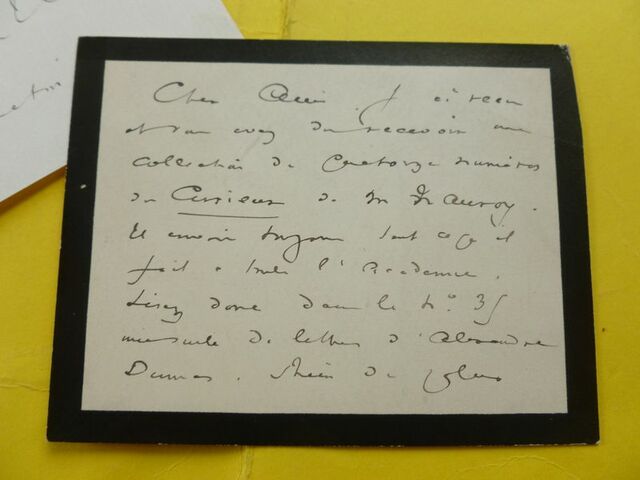 Cher Ami, J'ai reçu
et vous avez dû recevoir une
collection de quatorze numéros
du Curieux de M Nauroy.
Il envoie toujours tout ce qu'il
fait à toute l'Académie.
Lisez donc dans le No 35
de lettres d'Alexandre
Dumas. Rien de plus